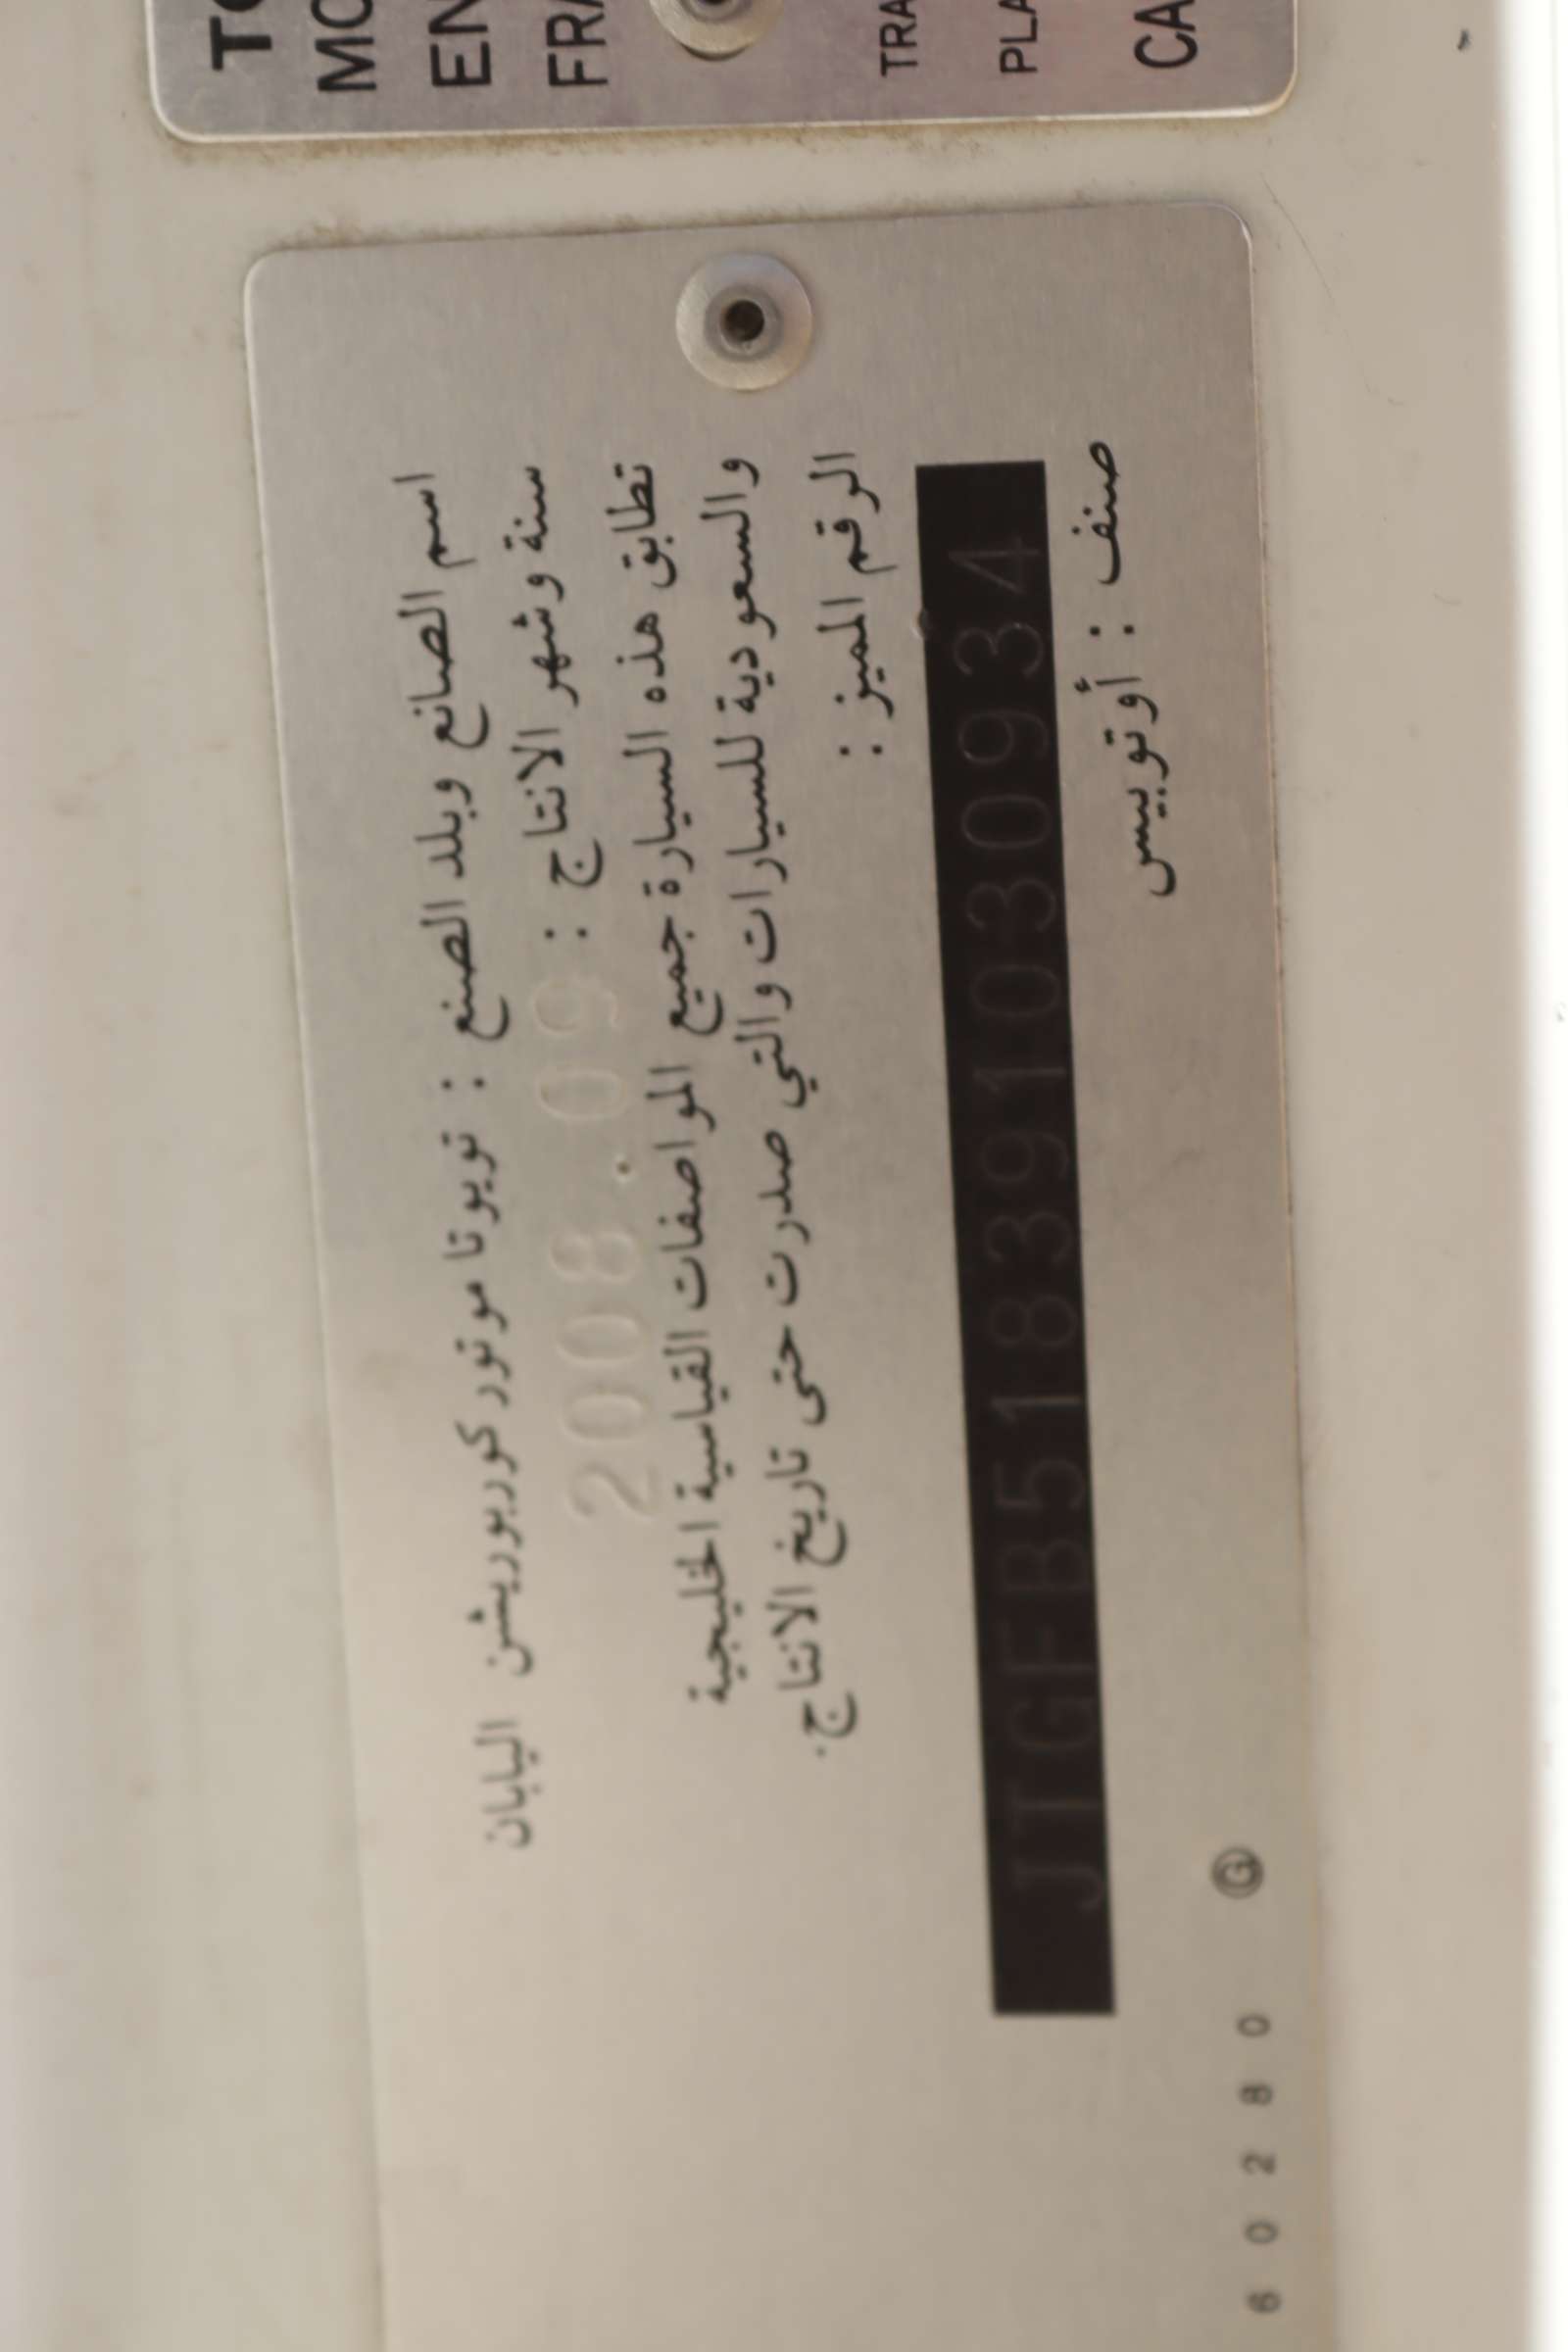 TO
MO
EN
FRA
TRA
PLA
CA
اسم الصانع وبلد الصنع : تويوتا موتور كوربوريشن اليابان
سنة وشهر الانتاج : 2008.09
تطابق هذه السيارة جميع المواصفات القياسية الخليجية
والسعودية للسيارات والتي صدرت حتى تاريخ الانتاج.
الرقم المميز :
JTGFB518391030934
صنف : أوتوبيس
60280 Ⓖ